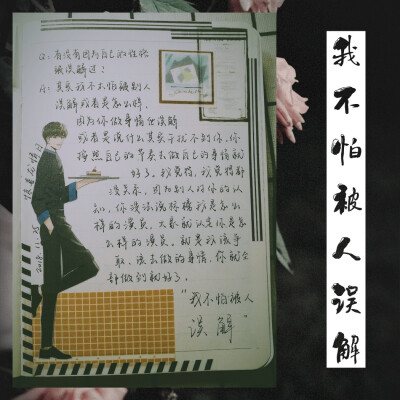 Q：有没有因为自己的性格
被误解过：
A：其实我不太怕被别人
误解或者是怎么样，
因为你做事情但误解
或者是说什么其实于我不到你，你
按照自己的节奏去做自己的事情就
好了。我觉得，我觉得都
没关系，因为别人对你的认
知，你没法说服谁我是怎么
样的演员，大家就认定你是怎
么样的演员，就是我该争
取，该去做的事情，你就全
部做到就好了。
"我不怕被人
误解"
2018.11.25
我不怕被人误解